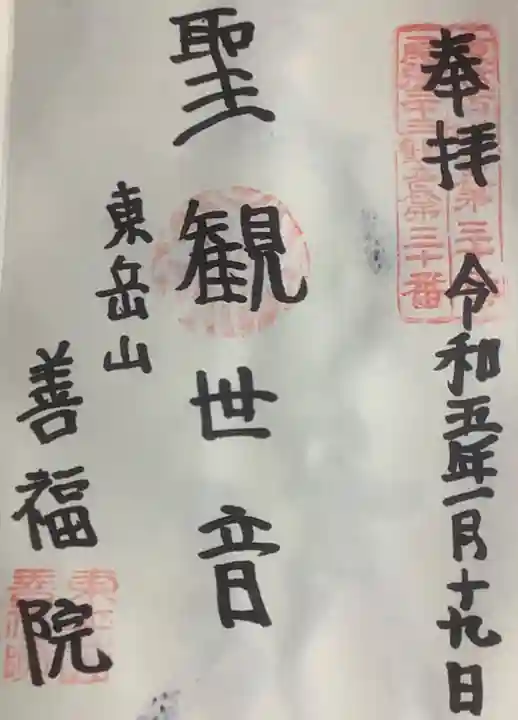 奉拝 令和五年一月十九日
聖観世音
東岳山
善福院